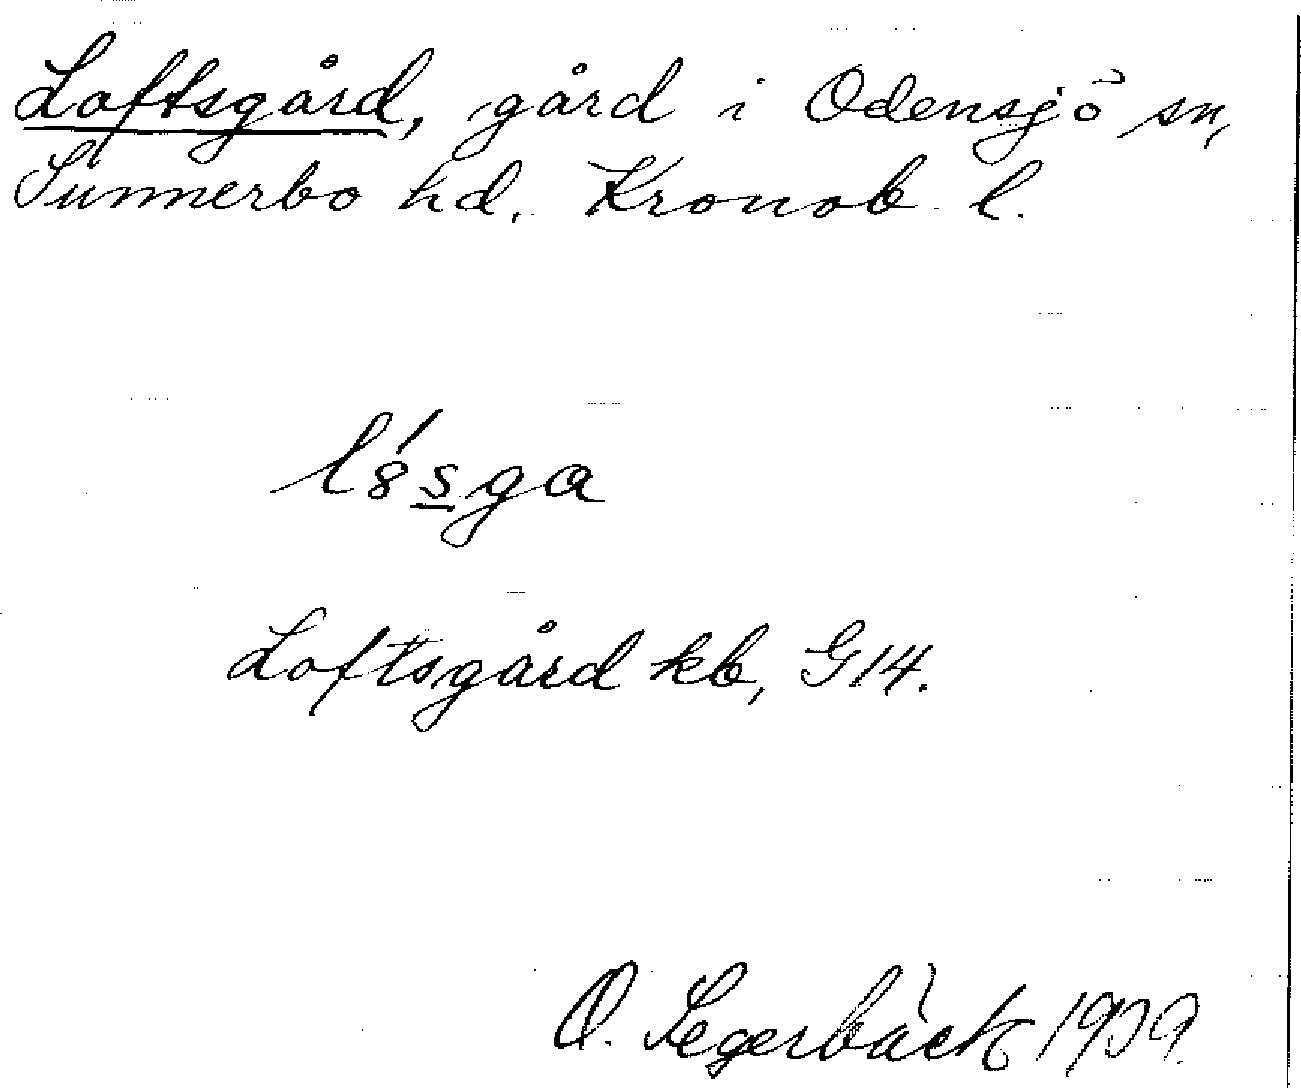 Loftsgård, gård i Odensjö sn,
Sunnerbo hd. Kronob. l.
l8́s̲ga
Loftsgård kb, G14.
O. Segerbäck 1909.